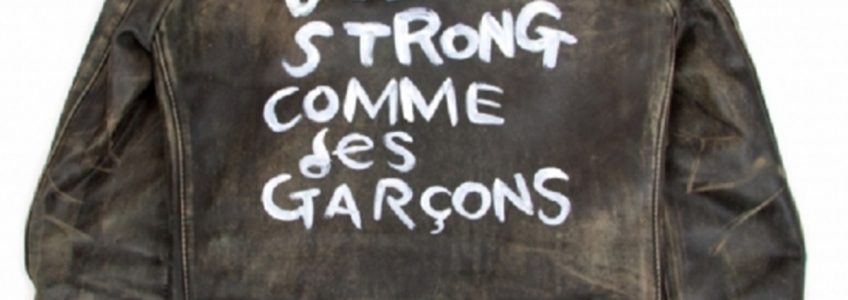 STRONG
COMME
des
GARÇONS